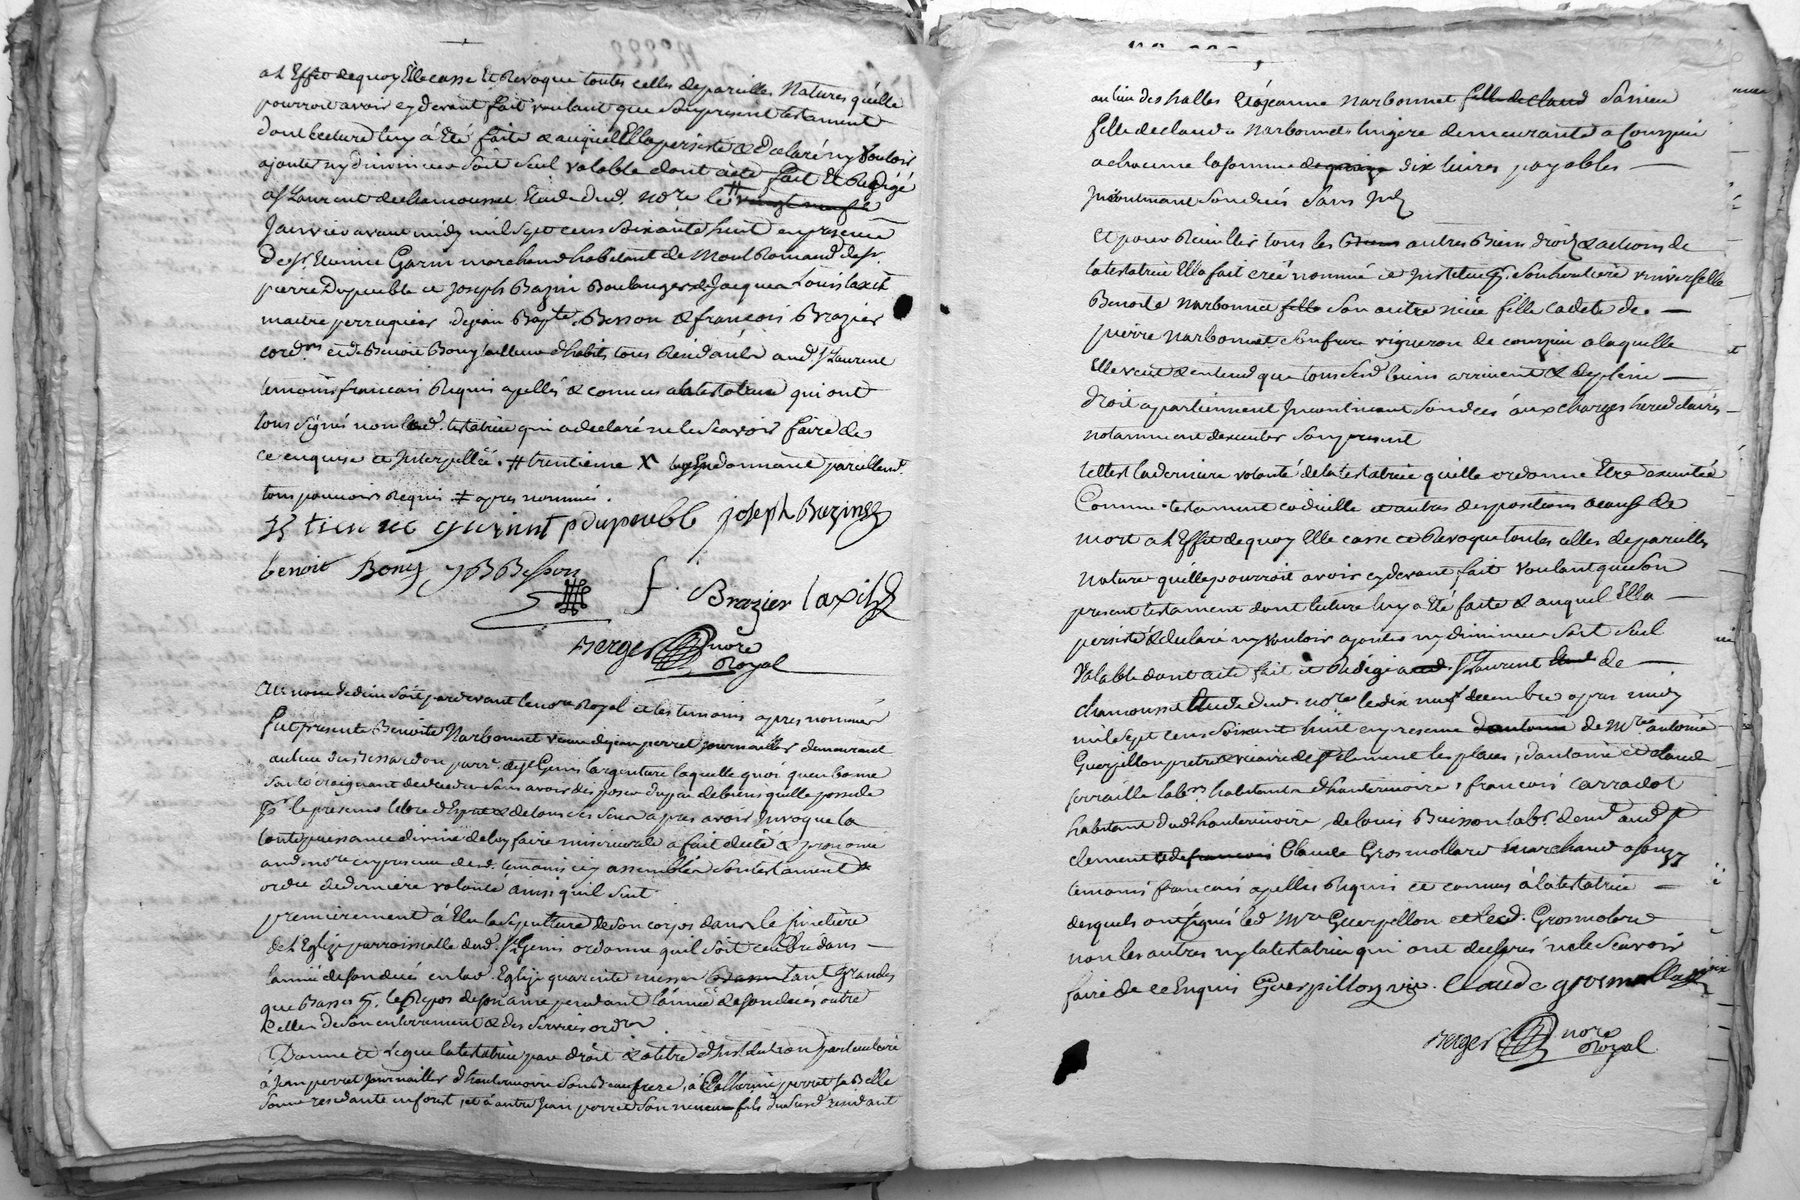 a L'Effet de quoy Elle casse Et Revoque toutes celles de pareilles Natures quelle
pourroit avoir cy devant fait voulant que son present testament
dont lecture luy à Eté faite & auquel Ella persisté & declaré ny Vouloir
ajouter ny diminuer soit seul valable dont acte fait Et Redigé
a St Laurent de chamousset Etude dud. nore le # vingt neufe
Janvier avant midy mil sept cens soixante huit en presence
de sr. Etienne Garin marchand habitant de Montromand de sr.
pierre Dupeuble et Joseph Bazin Boulangers de Jacques Louis laxit
maitre perruquier de jean Bapte. Besson & francois Brazier
cordrs et de Benoit Bony tailleur d'habits tous Residants aud. St Laurent
temoins francois Requis apellés & connus a la testatrice qui ont
tous signés non lad. testatrice qui a declaré ne le scavoir faire de
ce enquise et Interpellée. # trentieme X donnant pareillemt.
tous pouvoirs Requis ‡ apres nommés.
Etienne guerint pdupeuble joseph Bazin
benoit Bony JB Besson
f. Brazier laxit
Berger nore
Royal
Au nom de dieu soit pardevant le nore Royal et les temoins apres nommés
fut presente Benoite Narbonnet veuve de jean perret journaillier demeurant
au lieu du Bissardon parr. de st Genis l'argentiere laquelle quoi qu'en bonne
santé craignant de deceder sans avoir disposer du peu de biens quelle possede
Et le presens libre d'Esprit & de tous ses sens apres avoir Invoque la
toute puissance divine de luy faire misericorde a fait dicté & prononcé
aud. nore en presence desd. temoins icy assemblés son testament &
ordre de derniere volonté ainsi qu'il suit
premierement à Elu la sepulture de son corps dans le simetiere
de L'Eglise parroissialle dud. St Genis ordonne quil soit celebré dans
l'année de son decés en lad. Eglise quarente messes tant Grandes
que Basses pr. le Repos de son ame pendant l'année de son decés outre
celles de son enterrement & des services ordres
Donne et Legue la testatrice par droit & a titre d'Institution particuliere
à jean perret journaillier d'hauterivoire son Beaufrere, à Catherine perret sa Belle
soeur residante en forist, et à autre Jean perret son neveu fils du susd. residant
au lieu des halles Et à jeanne Narbonnet fille de claud sa niece
fille de claude Narbonnet lingere demeurante a Courzieu
a chacune la somme de quinze dix livres payables
Incontinant son decés sans Int.
Et pour Recuillir tous les Biens autres Biens droits & actions de
la testatrice Ella fait creé nommé et Institué pr. son heritiere universelle
Benoite Narbonnet fille son autre niéce fille cadete de
pierre Narbonnet son frere vigneron de courzieu a laquelle
Elle veut & entend que tous sesd. biens arrivent & de plein
droit apartiennent Incontinant son decés aux charges hereditaires
notamment d'executer son present
telle est la derniere volonté de la testatrice quelle ordonne Etre executée
Comme testament codicille et autres dispositions a cause de
mort a L'Effet de quoy Elle casse et Revoque toutes celles de pareilles
nature quelle pourroit avoir cy devant fait Voulant que son
present testament dont lecture luy a Eté faite & auquel Ella
persisté & declaré ny vouloir ajouter ny diminuer soit seul
Valable dont acte fait et Redigé aud. St Laurent de
chamousset Etude dud. nore le dix neuf decembre apres midy
mil sept cens soixant huit en presence d'antoine de Mre antoine
Guerpillon pretre & vicaire de st Clement les places, d'antoine et claude
serraille labrs. habitants d'hauterivoire, francois Carradot
habitant dud. hauterivoire, de louis Buisson labr. demt. aud. St
clement et de francois Claude Grosmollard marchand a souzy
temoins francois apellés Requis et connus à la testatrice
desquels ont signés led. Mre Guerpillon et led. Grosmolard
non les autres ny la testatrice qui ont declarés ne le scavoir
faire de ce Enquis Guerpillon vire. Claude grosmollard
Berger nore
Royal